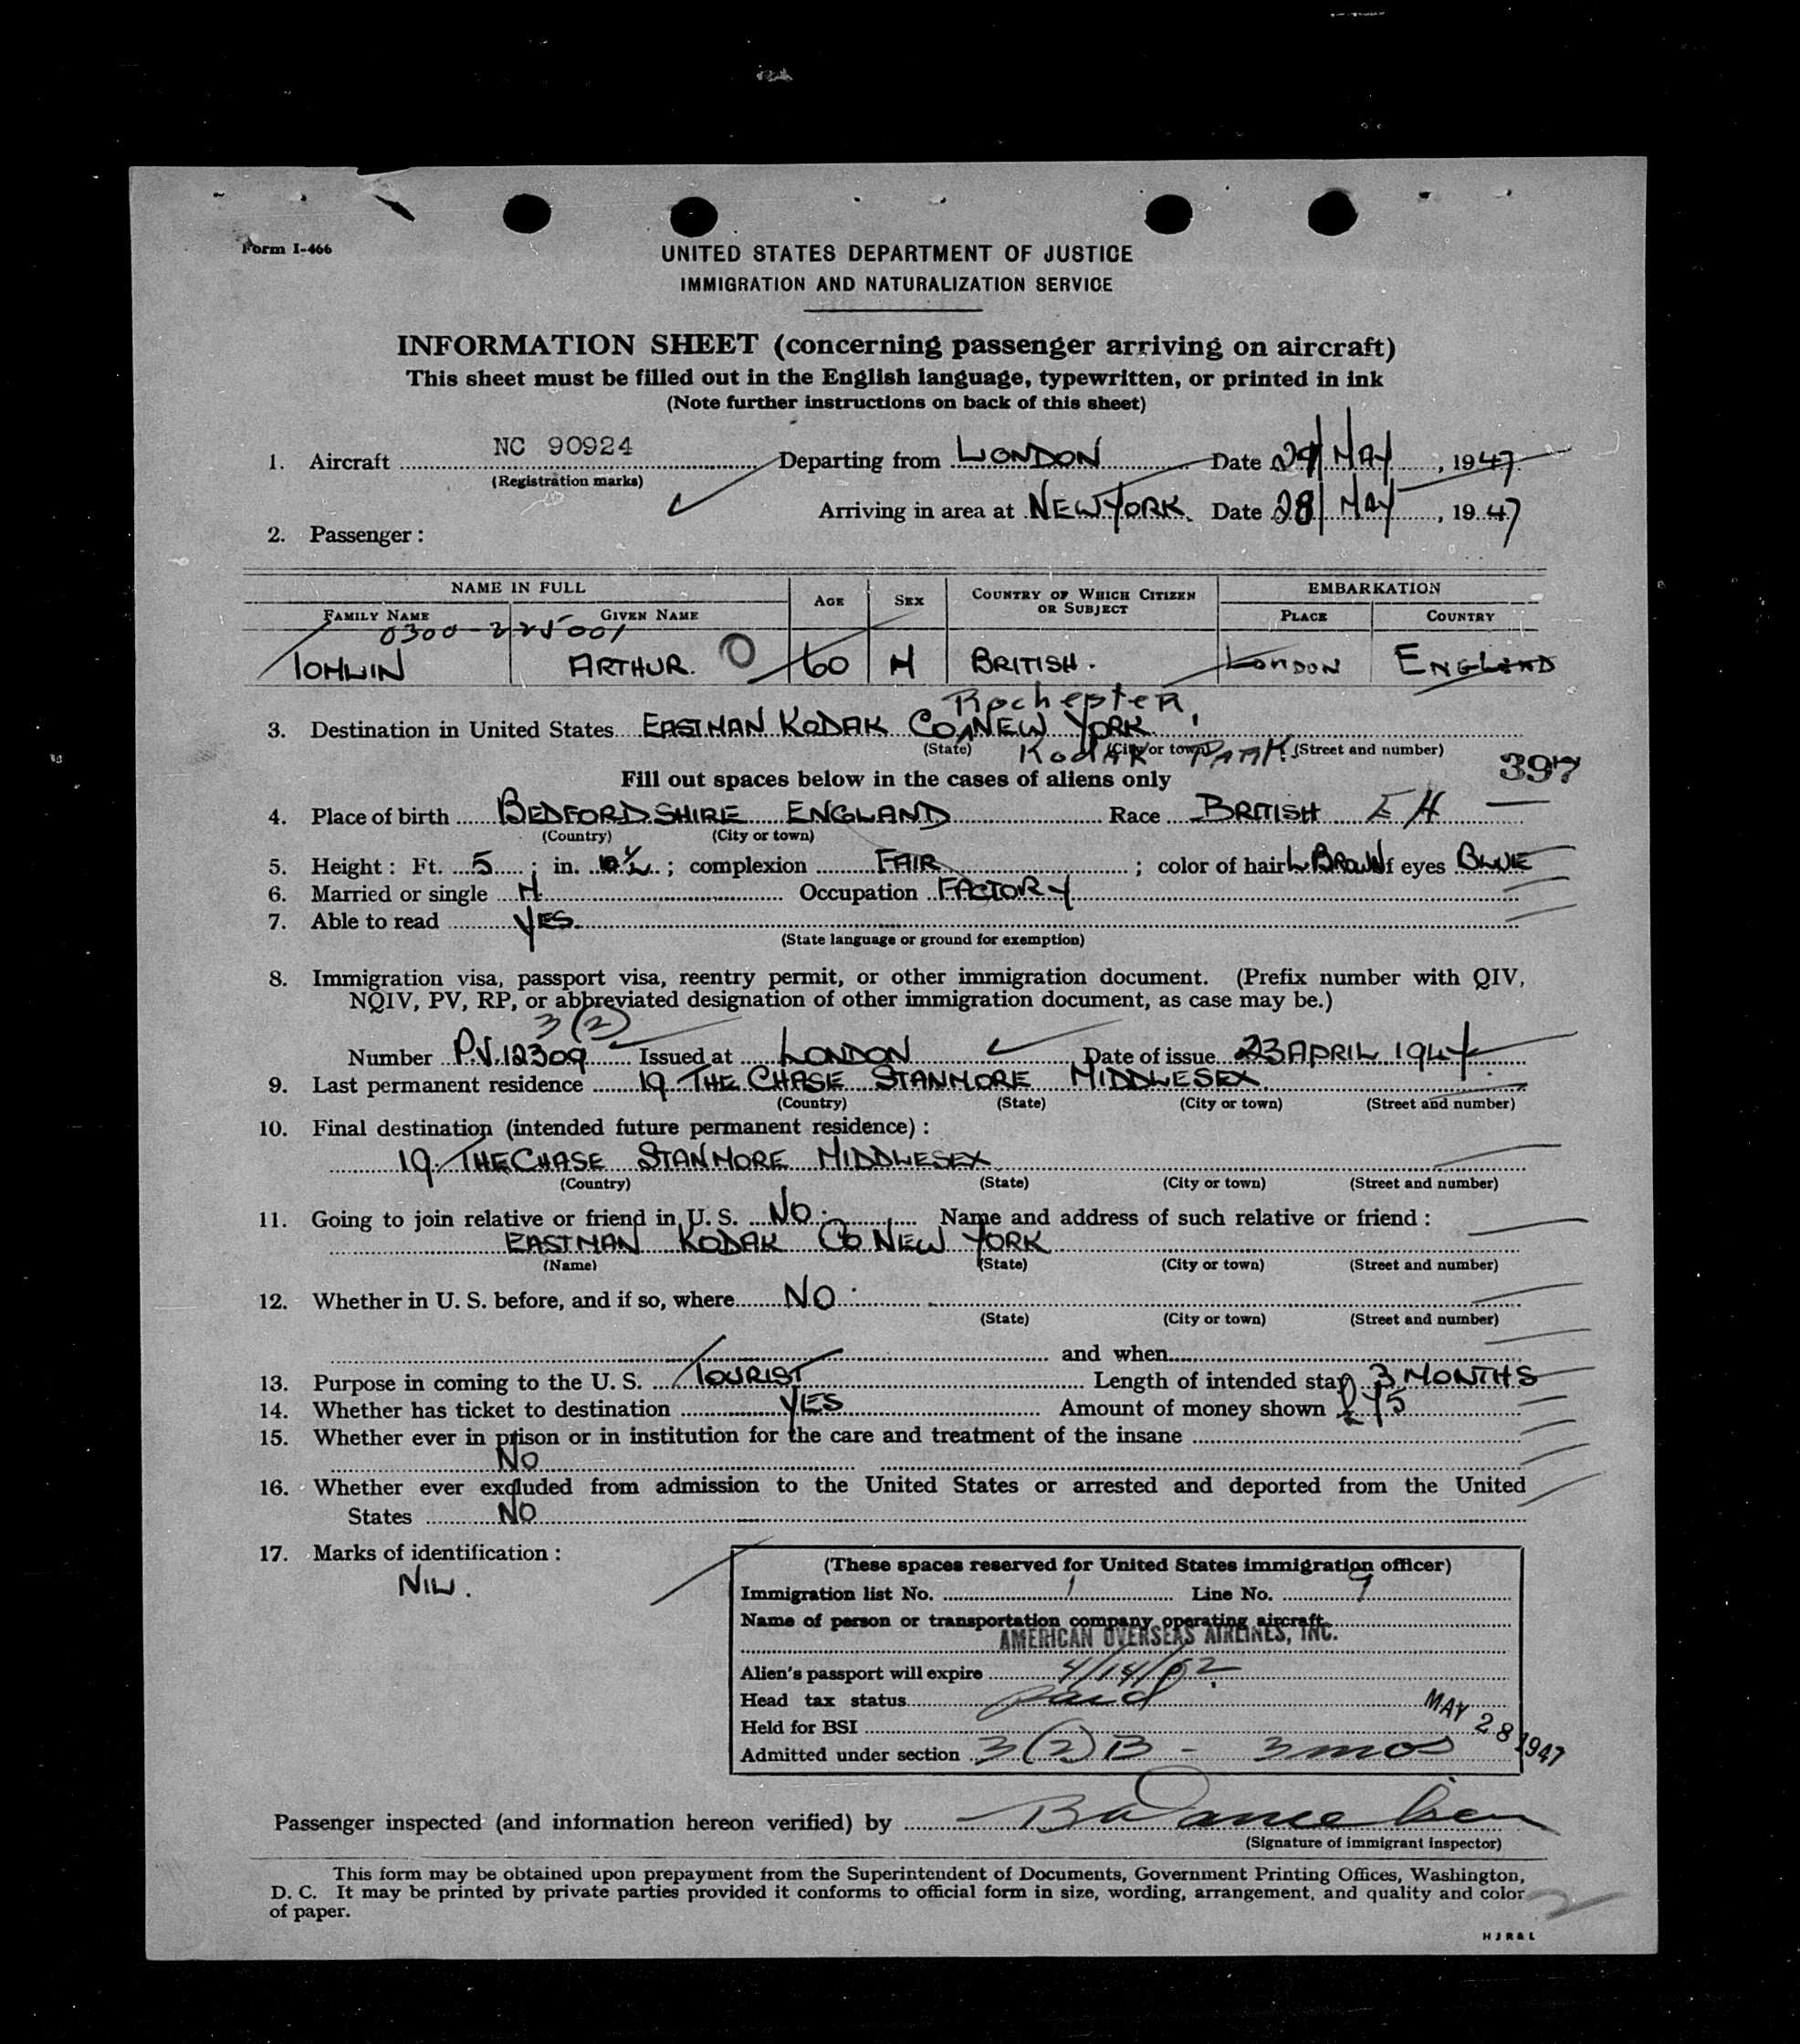 Form I-466
UNITED STATES DEPARTMENT OF JUSTICE
IMMIGRATION AND NATURALIZATION SERVICE
INFORMATION SHEET (concerning passenger arriving on aircraft)
This sheet must be filled out in the English language, typewritten, or printed in ink
(Note further instructions on back of this sheet)
1. Aircraft NC 90924 Departing from LONDON Date 27 MAY, 1947
(Registration marks)
Arriving in area at NEW YORK. Date 28 MAY, 1947
2. Passenger:
NAME IN FULL AGE SEX COUNTRY OF WHICH CITIZEN OR SUBJECT EMBARKATION
FAMILY NAME GIVEN NAME PLACE COUNTRY
0300-225001
TOMLIN ARTHUR. 60 M BRITISH. LONDON ENGLAND
Rochester,
3. Destination in United States EASTMAN KODAK Co NEW YORK
(State) (City or town) (Street and number)
Kodak Park
397
Fill out spaces below in the cases of aliens only
4. Place of birth BEDFORDSHIRE ENGLAND Race BRITISH
(Country) (City or town)
5. Height: Ft. 5; in. 10½; complexion FAIR; color of hair L BROWN of eyes BLUE
6. Married or single M. Occupation FACTORY
7. Able to read YES.
(State language or ground for exemption)
8. Immigration visa, passport visa, reentry permit, or other immigration document. (Prefix number with QIV,
NQIV, PV, RP, or abbreviated designation of other immigration document, as case may be.)
3(2)
Number P.V. 12309 Issued at LONDON Date of issue 23 APRIL 1947.
9. Last permanent residence 19 THE CHASE STANMORE MIDDLESEX
(Country) (State) (City or town) (Street and number)
10. Final destination (intended future permanent residence):
19. THE CHASE STANMORE MIDDLESEX
(Country) (State) (City or town) (Street and number)
11. Going to join relative or friend in U. S. NO. Name and address of such relative or friend:
EASTMAN KODAK Co NEW YORK
(Name) (State) (City or town) (Street and number)
12. Whether in U. S. before, and if so, where NO.
(State) (City or town) (Street and number)
and when
13. Purpose in coming to the U. S. TOURIST Length of intended stay 3 MONTHS
14. Whether has ticket to destination YES Amount of money shown £75
15. Whether ever in prison or in institution for the care and treatment of the insane
NO
16. Whether ever excluded from admission to the United States or arrested and deported from the United
States NO
17. Marks of identification:
NIL.
(These spaces reserved for United States immigration officer)
Immigration list No. 1 Line No. 9
Name of person or transportation company operating aircraft
AMERICAN OVERSEAS AIRLINES, INC.
Alien's passport will expire 4/14/52
Head tax status paid
MAY 28 1947
Held for BSI
Admitted under section 3(2)B - 3 mos
Passenger inspected (and information hereon verified) by
(Signature of immigrant inspector)
This form may be obtained upon prepayment from the Superintendent of Documents, Government Printing Offices, Washington,
D. C. It may be printed by private parties provided it conforms to official form in size, wording, arrangement, and quality and color
of paper.
2
H J R & L